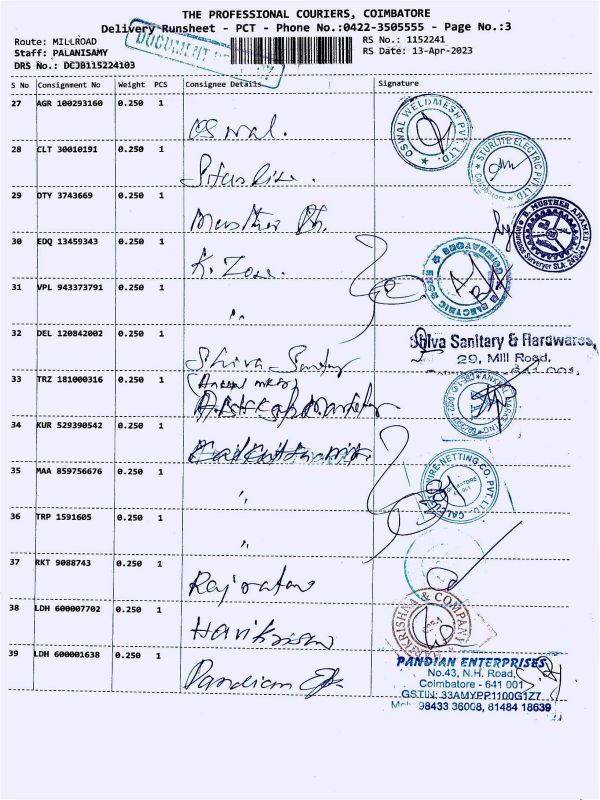 THE PROFESSIONAL COURIERS, COIMBATORE
Delivery Runsheet - PCT - Phone No.:0422-3505555 - Page No.:3
Route: MILLROAD
RS No.: 1152241
Staff: PALANISAMY
RS Date: 13-Apr-2023
DRS No.: DCJB115224103
DOCUMENT
S No Consignment No Weight PCS Consignee Details Signature
27 AGR 100293160 0.250 1
Oswal.
OSWAL WELDMESH PVT. LTD.
28 CLT 30010191 0.250 1
STURLITE ELECTRIC PVT LTD
Coimbatore
29 DTY 3743669 0.250 1
Musther
B. MUSTHER AHAMED
30 EDQ 13459343 0.250 1
K. Zone.
31 VPL 943373791 0.250 1
"
32 DEL 120842002 0.250 1
Shiva
Shiva Sanitary & Hardwares,
29, Mill Road,
33 TRZ 181000316 0.250 1
34 KUR 529390542 0.250 1
35 MAA 859756676 0.250 1
"
NETTING CO. PVT. LTD.
36 TRP 1591605 0.250 1
"
37 RKT 9088743 0.250 1
Rajratan
38 LDH 600007702 0.250 1
Harikrisna
HARIKRISHNA & COMPANY
39 LDH 600001638 0.250 1
Pandian
PANDIAN ENTERPRISES
No.43, N.H. Road,
Coimbatore - 641 001
GSTIN: 33AMYPP1100G1Z7
98433 36008, 81484 18639